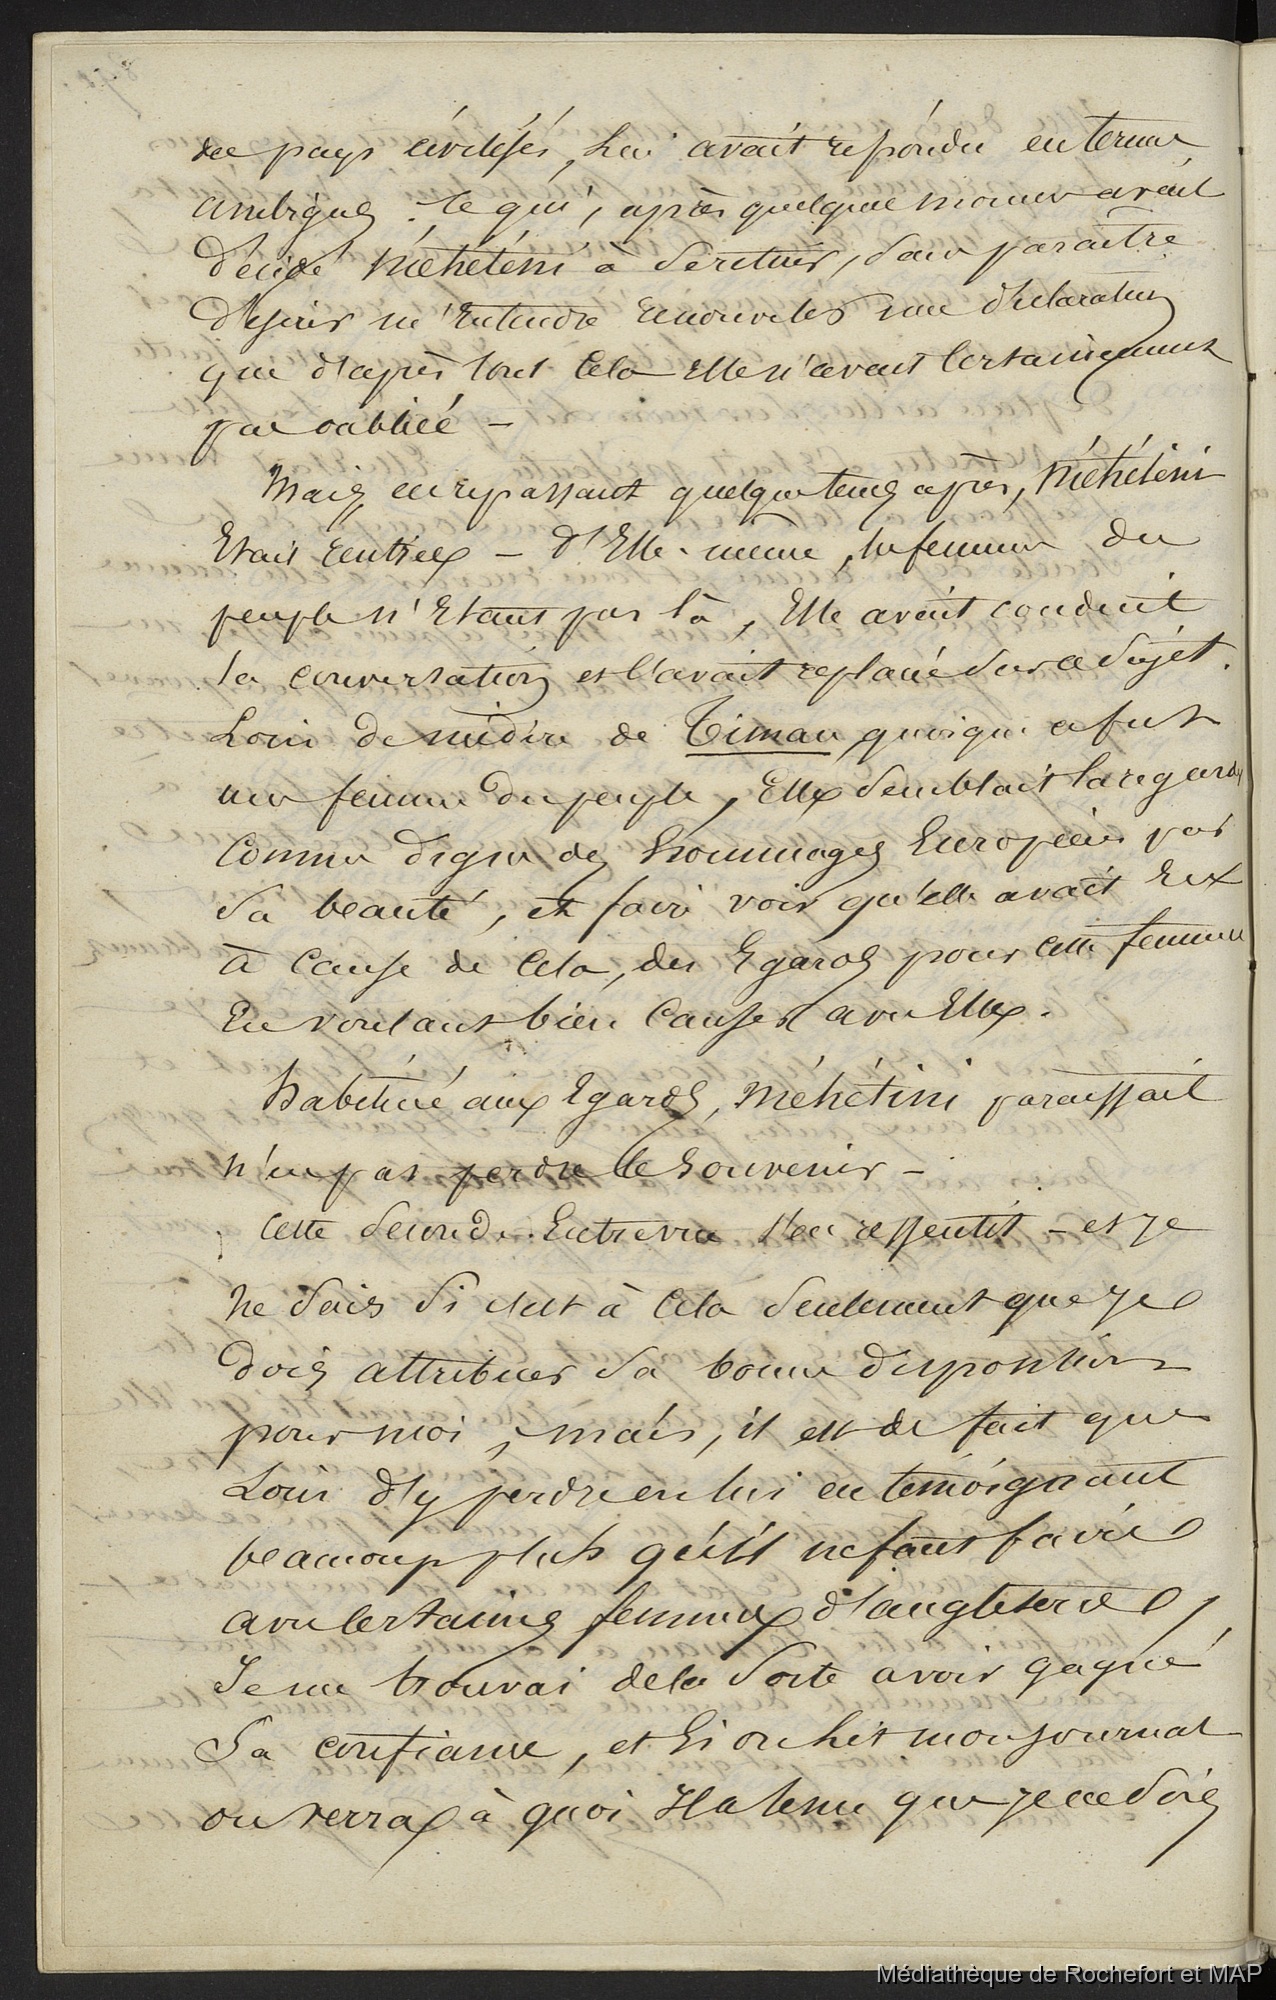 des pays civilisés, lui avait répondu en termes
ambigues : ce qui, après quelques momens avait
décidé Méhétini à se retirer, sans paraître
desirer m'entendre renouveler une déclaration
que d'après tout cela elle n'avait certainement
pas oubliée –
Mais, en repassant quelque tems après, Méhétini
Etait rentrée – d'Elle-même, la femme du
peuple n'Etant pas là, Elle avait conduit
la conversation et l'avait replacé sur ce sujet.
Loin de médire de Timau quoique ce fut
une femme du peuple, Elle semblait la regarder
comme digne des hommages Européens par
sa beauté, et faire voir qu'elle avait Eux
à cause de cela, des Egards pour cette femme
En voulant bien causer avec Elle.
habitué aux Egards, Méhétini paraissait
n'en pas perdre le souvenir –
Cette seconde Entrevue s'en ressentit – et je
ne sais si c'est à cela seulement que je
dois attribuer sa bonne disposition
pour moi, mais, il est de fait que
Loin d'y perdre en lui en témoignant
beaucoup plus qu'il ne faut faire
avec certaines femmes d'angleterre,
Je me trouvai de la sorte avoir gagné
Sa confiance, et Si on lit mon journal
on verra à quoi Il a tenu que je ne sois
Médiathèque de Rochefort et MAP